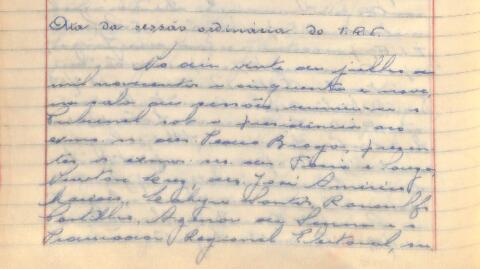 Ata da sessão ordinária do T.R.E.
No dia vinte de julho de
mil novecentos e cinquenta e nove,
na sala de sessões, reuniu-se o
Tribunal sob a presidência do
exmo. sr. des. Pedro Braga, presen-
tes os exmos. srs. des. Faria e Souza,
des. José Américo
Macedo, Santos, Ronan
Castilho, e o
Procurador Regional Eleitoral,